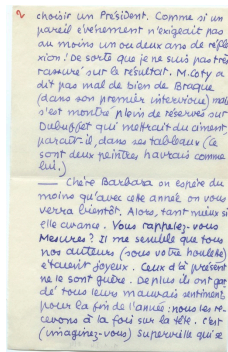 2
choisir un Président. Comme si un
pareil évènement n'exigeait pas
au moins un ou deux ans de réfle
xion! De sorte que je ne suis pas très
rassuré sur le résultat. M. Coty a
dit pas mal de bien de Braque
(dans son premier interview) mais
s'est montré plein de réserves sur
Dubuffet qui mettrait du ciment,
paraît-il, dans ses tableaux (ce
sont deux peintres havrais comme
lui.)
— Chère Barbara on espère du
moins qu'avec cette année on vous
verra bientôt. Alors, tant mieux si
elle avance. Vous rappelez-vous
Mesures? Il me semble que tous
nos auteurs (sous votre houlette)
étaient joyeux. Ceux d'à présent
ne le sont guère. De plus ils ont gar
dé tous leurs mauvais sentiments
pour la fin de l'année: nous les re-
cevons à la fois sur la tête. C'est
(imaginez-vous) Supervielle qui se